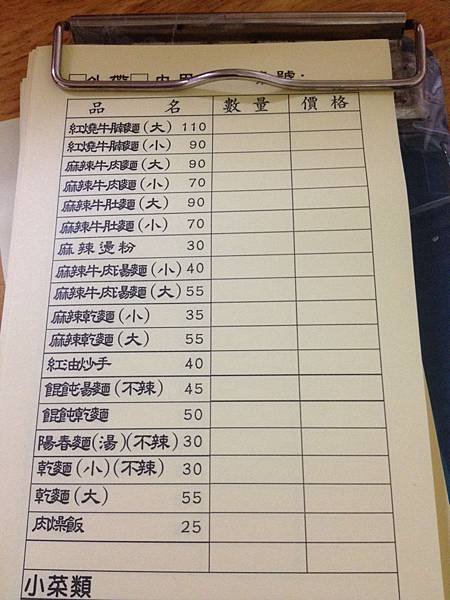 □外帶□內用 桌號:
品 名 數量 價格
紅燒牛腩麵(大) 110
紅燒牛腩麵(小) 90
麻辣牛肉麵(大) 90
麻辣牛肉麵(小) 70
麻辣牛肚麵(大) 90
麻辣牛肚麵(小) 70
麻辣燙粉 30
麻辣牛肉湯麵(小) 40
麻辣牛肉湯麵(大) 55
麻辣乾麵(小) 35
麻辣乾麵(大) 55
紅油炒手 40
餛飩湯麵(不辣) 45
餛飩乾麵 50
陽春麵(湯)(不辣) 30
乾麵(小)(不辣) 30
乾麵(大) 55
肉燥飯 25
小菜類